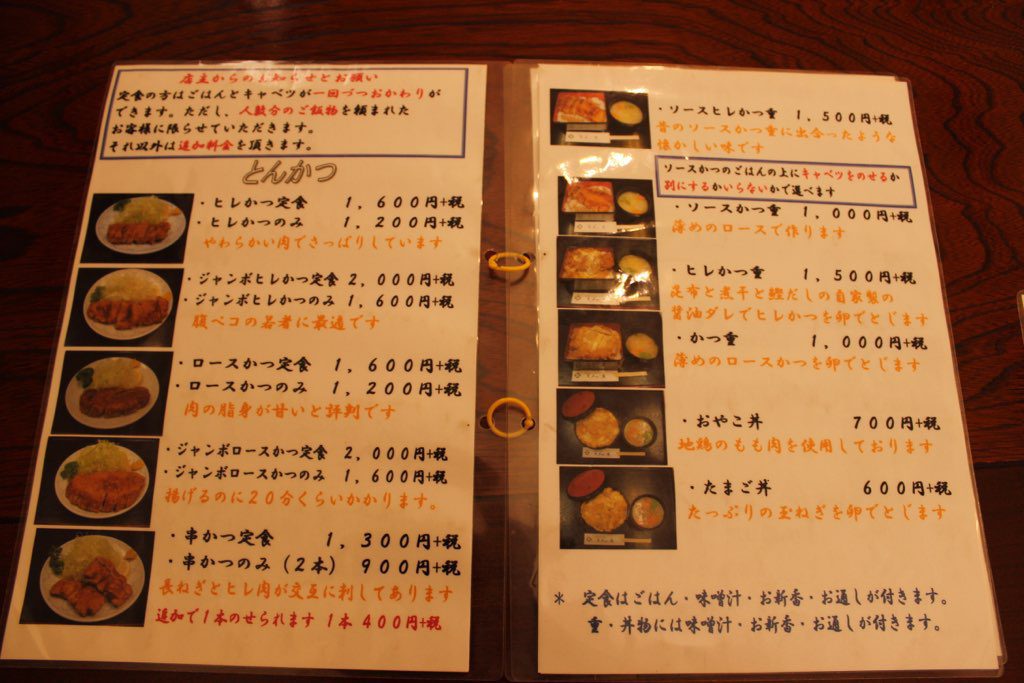 店主からのお知らせとお願い
定食の方はごはんとキャベツが一回づつおかわりが
できます。ただし、人数分のご飯物を頼まれた
お客様に限らせていただきます。
それ以外は追加料金を頂きます。
とんかつ
・ヒレかつ定食 1,600円+税
・ヒレかつのみ 1,200円+税
やわらかい肉でさっぱりしています
・ジャンボヒレかつ定食 2,000円+税
・ジャンボヒレかつのみ 1,600円+税
腹ペコの若者に最適です
・ロースかつ定食 1,600円+税
・ロースかつのみ 1,200円+税
肉の脂身が甘いと評判です
・ジャンボロースかつ定食 2,000円+税
・ジャンボロースかつのみ 1,600円+税
揚げるのに20分くらいかかります。
・串かつ定食 1,300円+税
・串かつのみ(2本) 900円+税
長ねぎとヒレ肉が交互に刺してあります
追加で1本のせられます 1本 400円+税
・ソースヒレかつ重 1,500円+税
昔のソースかつ重に出合ったような
懐かしい味です
ソースかつのごはんの上にキャベツをのせるか
別にするかいらないかで選べます
・ソースかつ重 1,000円+税
薄めのロースで作ります
・ヒレかつ重 1,500円+税
昆布と煮干と鰹だしの自家製の
醤油ダレでヒレかつを卵でとじます
・かつ重 1,000円+税
薄めのロースかつを卵でとじます
・おやこ丼 700円+税
地鶏のもも肉を使用しております
・たまご丼 600円+税
たっぷりの玉ねぎを卵でとじます
* 定食はごはん・味噌汁・お新香・お通しが付きます。
重・丼物には味噌汁・お新香・お通しが付きます。